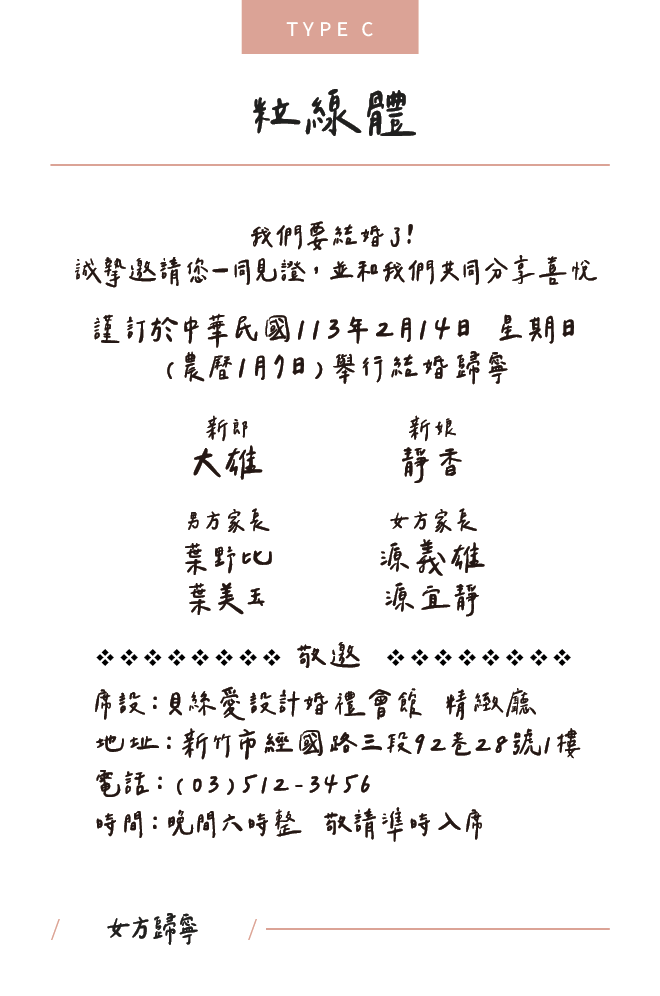 TYPE C
粒線體
我們要結婚了!
誠摯邀請您一同見證，並和我們共同分享喜悅
謹訂於中華民國113年2月14日 星期日
(農曆1月7日)舉行結婚歸寧
新郎 新娘
大雄 靜香
男方家長 女方家長
葉野比 源義雄
葉美玉 源宜靜
❖❖❖❖❖❖❖❖ 敬邀 ❖❖❖❖❖❖❖❖
席設：貝絲愛設計婚禮會館 精緻廳
地址：新竹市經國路三段92巷28號1樓
電話：(03)512-3456
時間：晚間六時整 敬請準時入席
/ 女方歸寧 /